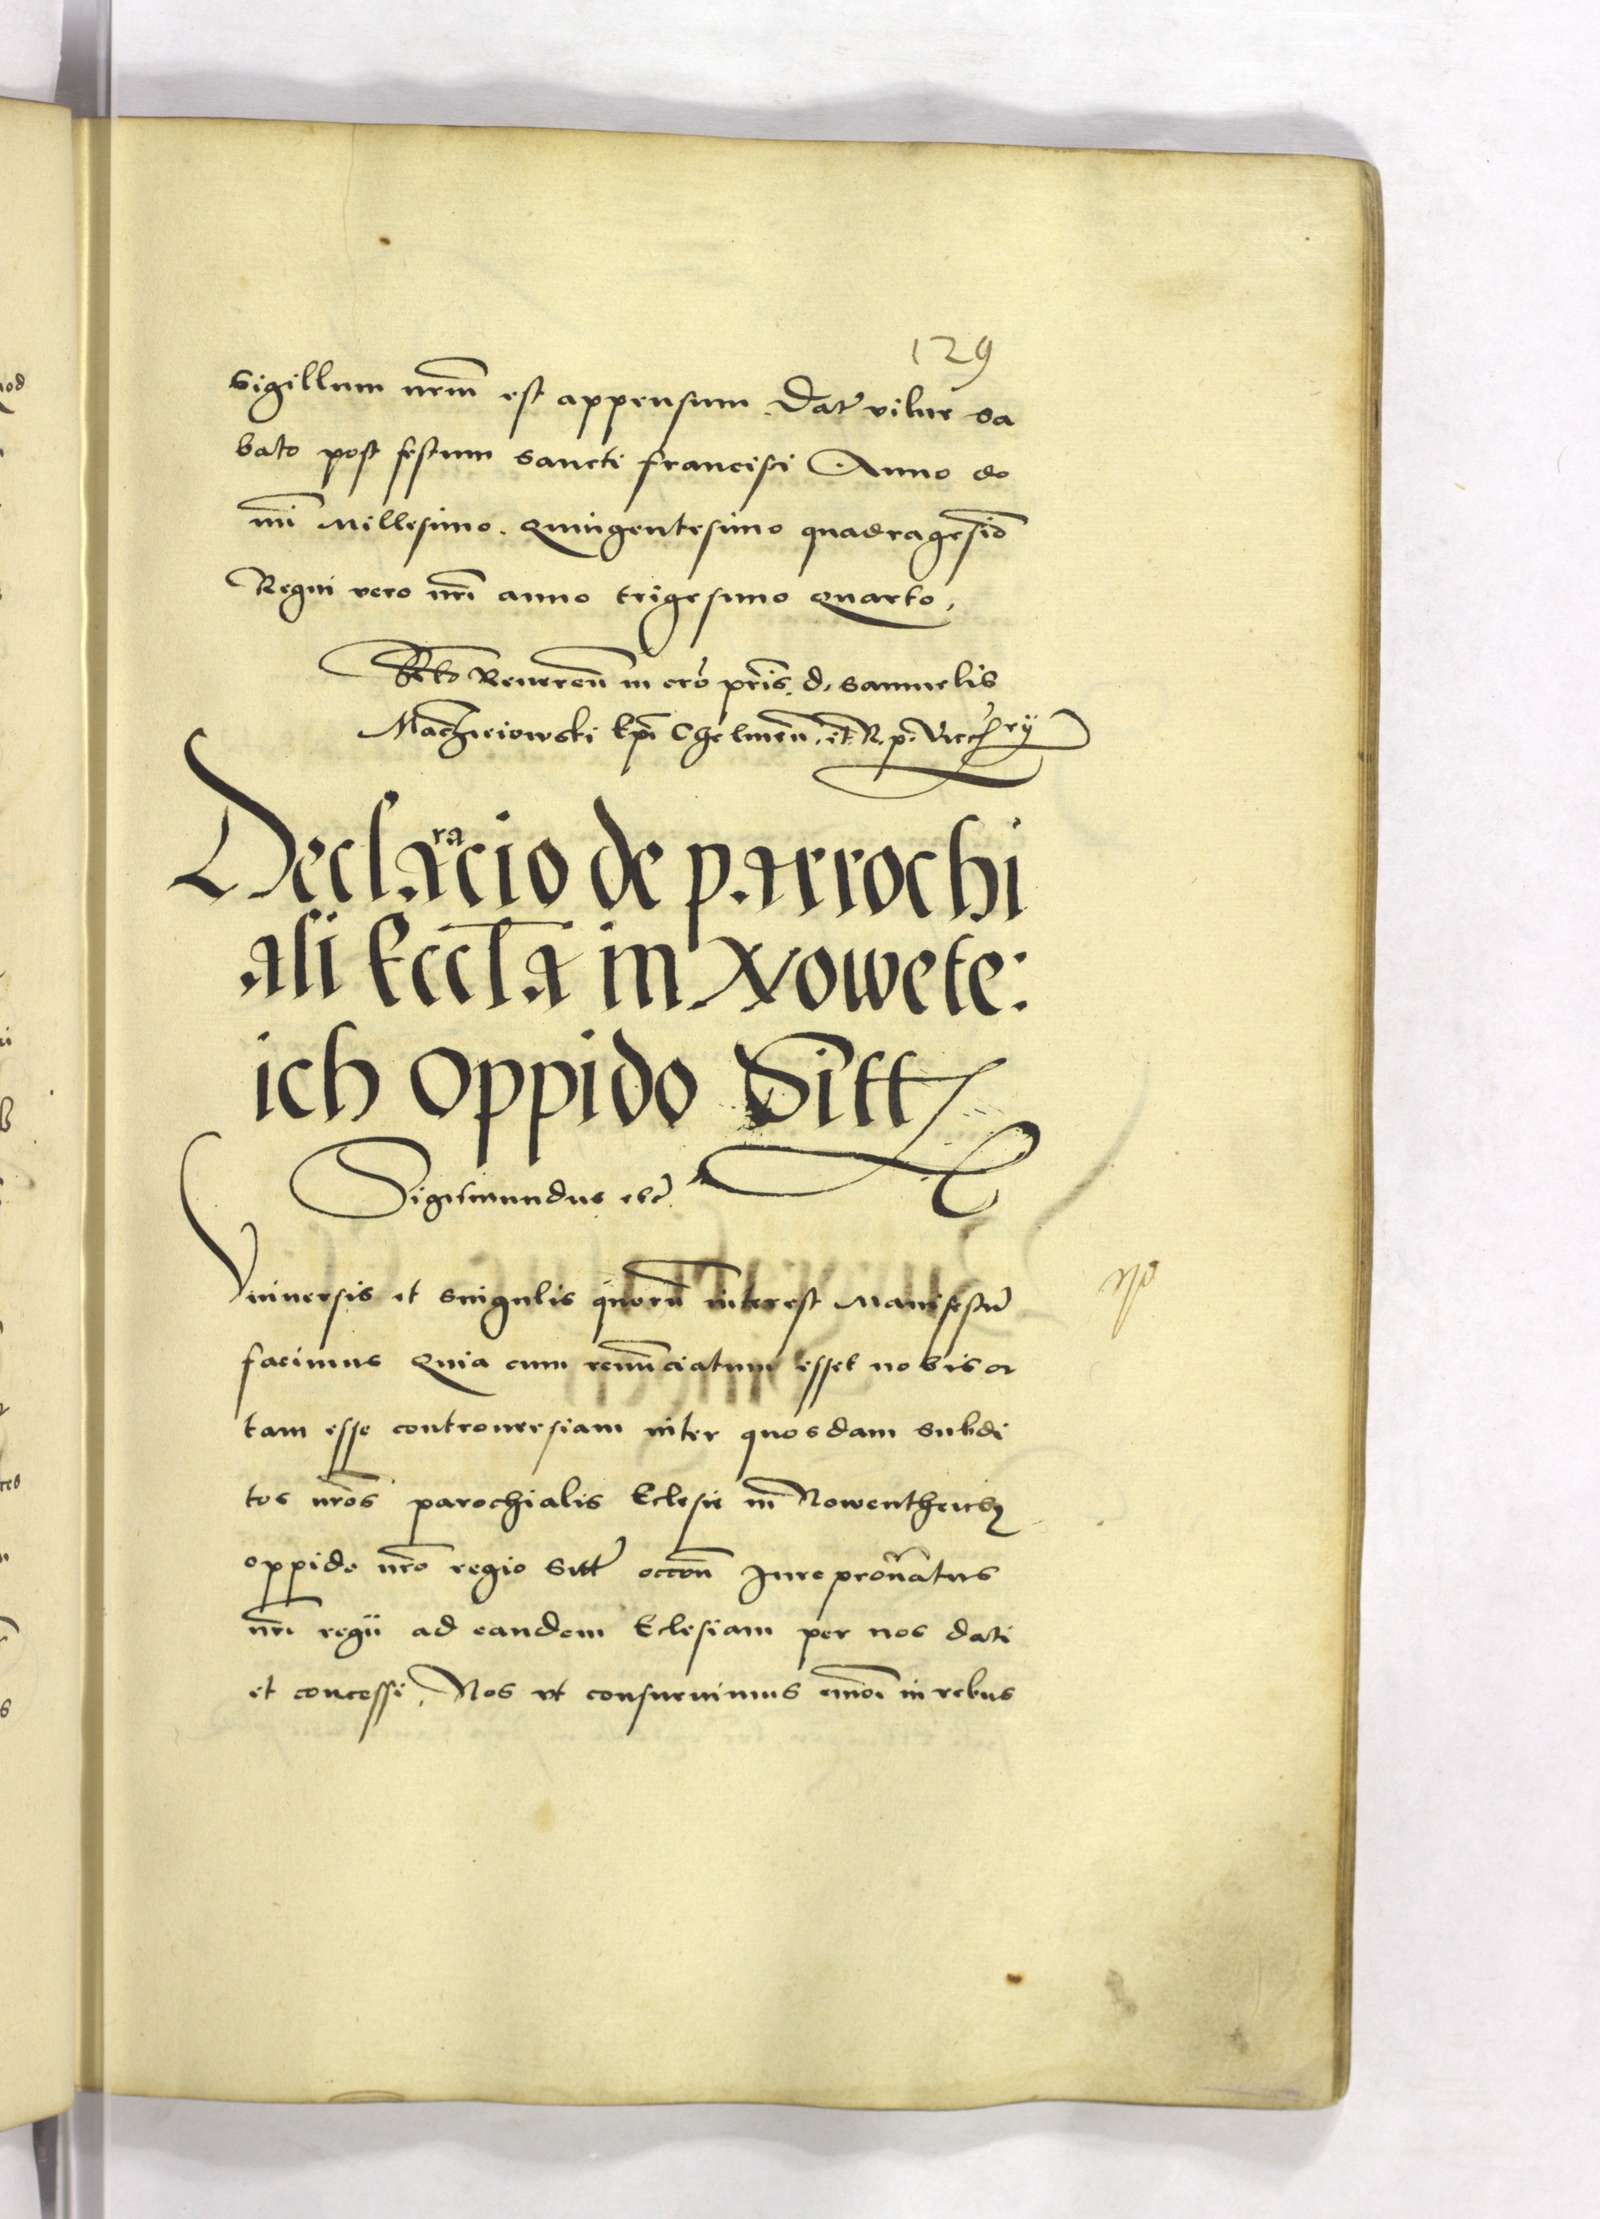 129
Sigillum nrm̃ est appensum. Dat̃ vilne sa
bato post festum sancti francisci Anno do
mi̅ Millesimo. Quingentesimo quadragesi̅o
Regni vero nr̃i anno trigesimo quarto,
Reverend̃ in cr̃o pr̃is. d. Samuelis
Macz̃ieiowski Ep̃i Chelmen̅. et R. p. Vice
Declaracio de parrochi
ali Eccl̃a in Nowete:
ich oppido Sitt
Sigismundus etc̃
Vniuersis et singulis quoru̅ interest Manifestu̅
facimus Quia cum renu̅nciatum esset nobis or
tam esse controuersiam inter quosdam subdi
tos nr̃os parochialis Eclesie in Nowentheich
oppido nr̃o regio Sitt̃ occo̅n Jure pronat̃us
nr̃i regii ad eandem Eclesiam per nos dati
et concessi, Nos vt consueuimus in rebus